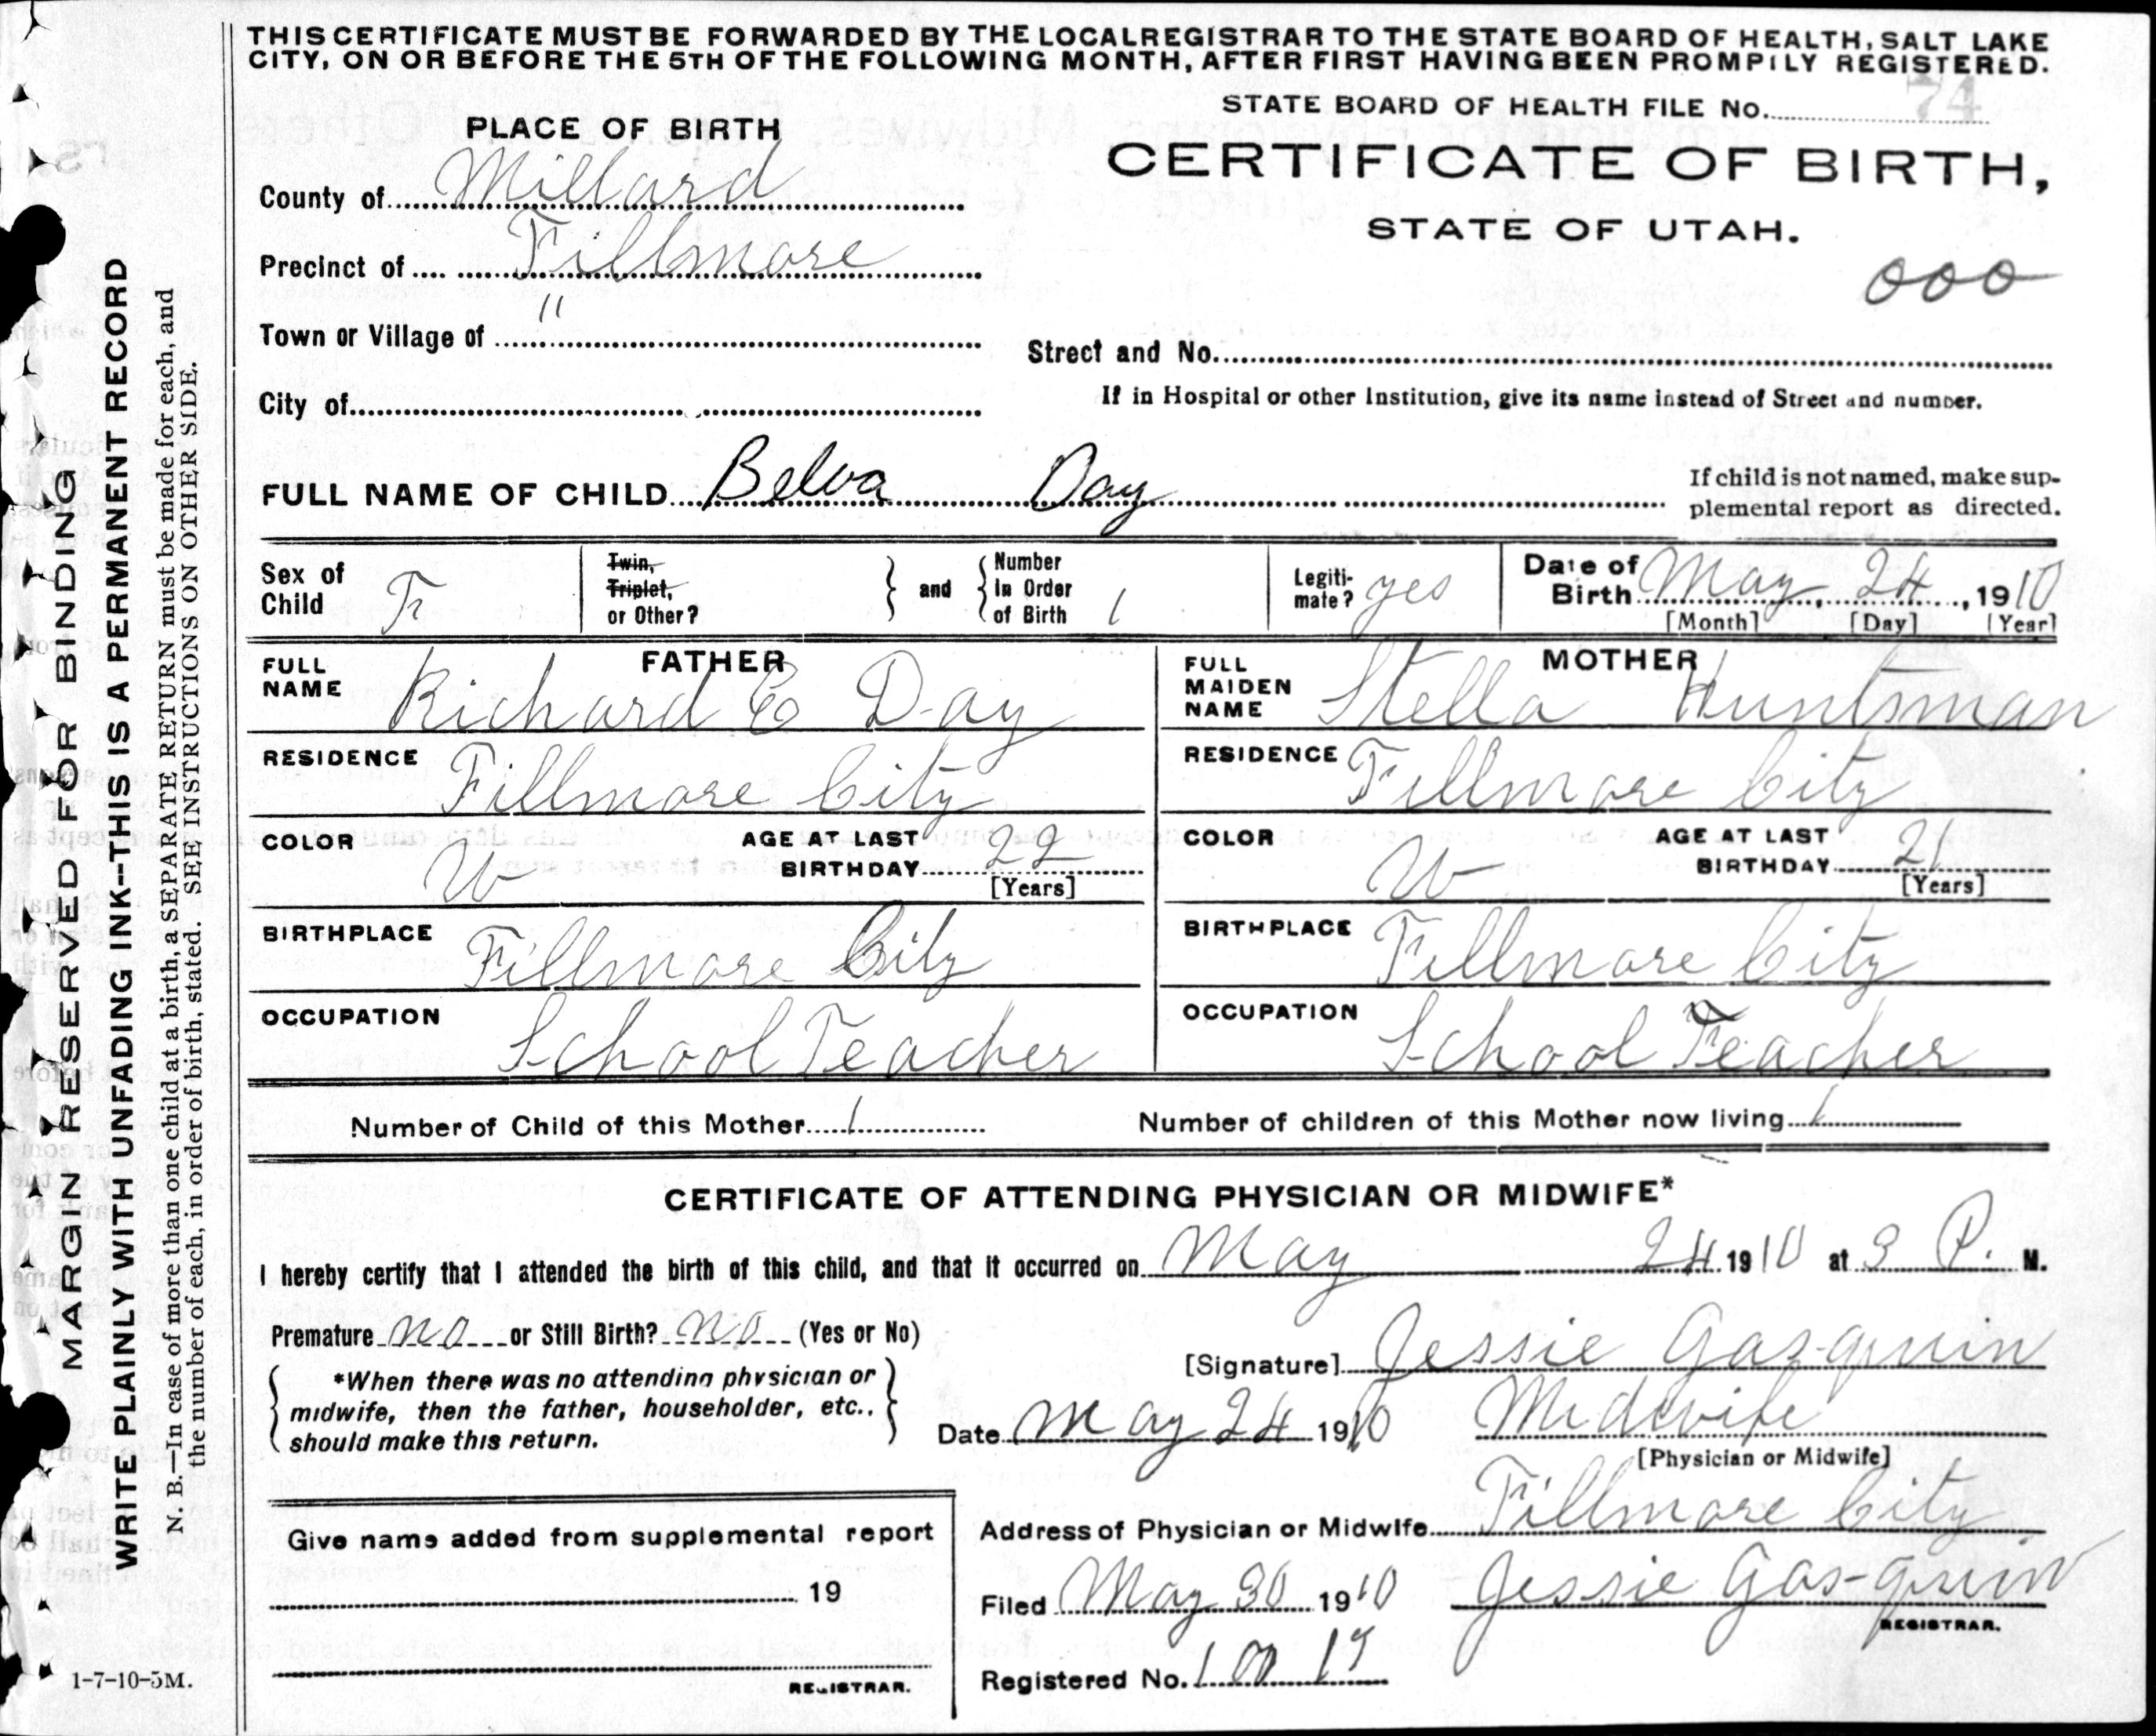 THIS CERTIFICATE MUST BE FORWARDED BY THE LOCAL REGISTRAR TO THE STATE BOARD OF HEALTH, SALT LAKE
CITY, ON OR BEFORE THE 5TH OF THE FOLLOWING MONTH, AFTER FIRST HAVING BEEN PROMPTLY REGISTERED.
STATE BOARD OF HEALTH FILE No. 74
PLACE OF BIRTH
CERTIFICATE OF BIRTH,
STATE OF UTAH.
000
County of Millard
Precinct of Fillmore
Town or Village of "
Street and No.
City of
If in Hospital or other Institution, give its name instead of Street and number.
FULL NAME OF CHILD Belva Day
If child is not named, make sup-
plemental report as directed.
Sex of Child F
Twin, Triplet, or Other?
and
Number In Order of Birth 1
Legiti-mate? yes
Date of Birth May 24, 1910
[Month] [Day] [Year]
FATHER
FULL NAME Richard C Day
RESIDENCE Fillmore City
COLOR W AGE AT LAST BIRTHDAY 22
[Years]
BIRTHPLACE Fillmore City
OCCUPATION School Teacher
MOTHER
FULL MAIDEN NAME Stella Huntsman
RESIDENCE Fillmore City
COLOR W AGE AT LAST BIRTHDAY 21
[Years]
BIRTHPLACE Fillmore City
OCCUPATION School Teacher
Number of Child of this Mother 1 Number of children of this Mother now living 1
CERTIFICATE OF ATTENDING PHYSICIAN OR MIDWIFE*
I hereby certify that I attended the birth of this child, and that it occurred on May 24 1910 at 3 P. M.
Premature no or Still Birth? no (Yes or No)
*When there was no attending physician or
midwife, then the father, householder, etc.,
should make this return.
[Signature] Jessie Gas-quin
Date May 24 1910 Midwife
[Physician or Midwife]
Address of Physician or Midwife Fillmore City
Filed May 30 1910 Jessie Gas-quin
REGISTRAR.
Registered No.
Give name added from supplemental report
19
REGISTRAR.
MARGIN RESERVED FOR BINDING
WRITE PLAINLY WITH UNFADING INK--THIS IS A PERMANENT RECORD
N. B.—In case of more than one child at a birth, a SEPARATE RETURN must be made for each, and
the number of each, in order of birth, stated. SEE INSTRUCTIONS ON OTHER SIDE.
1-7-10-5M.